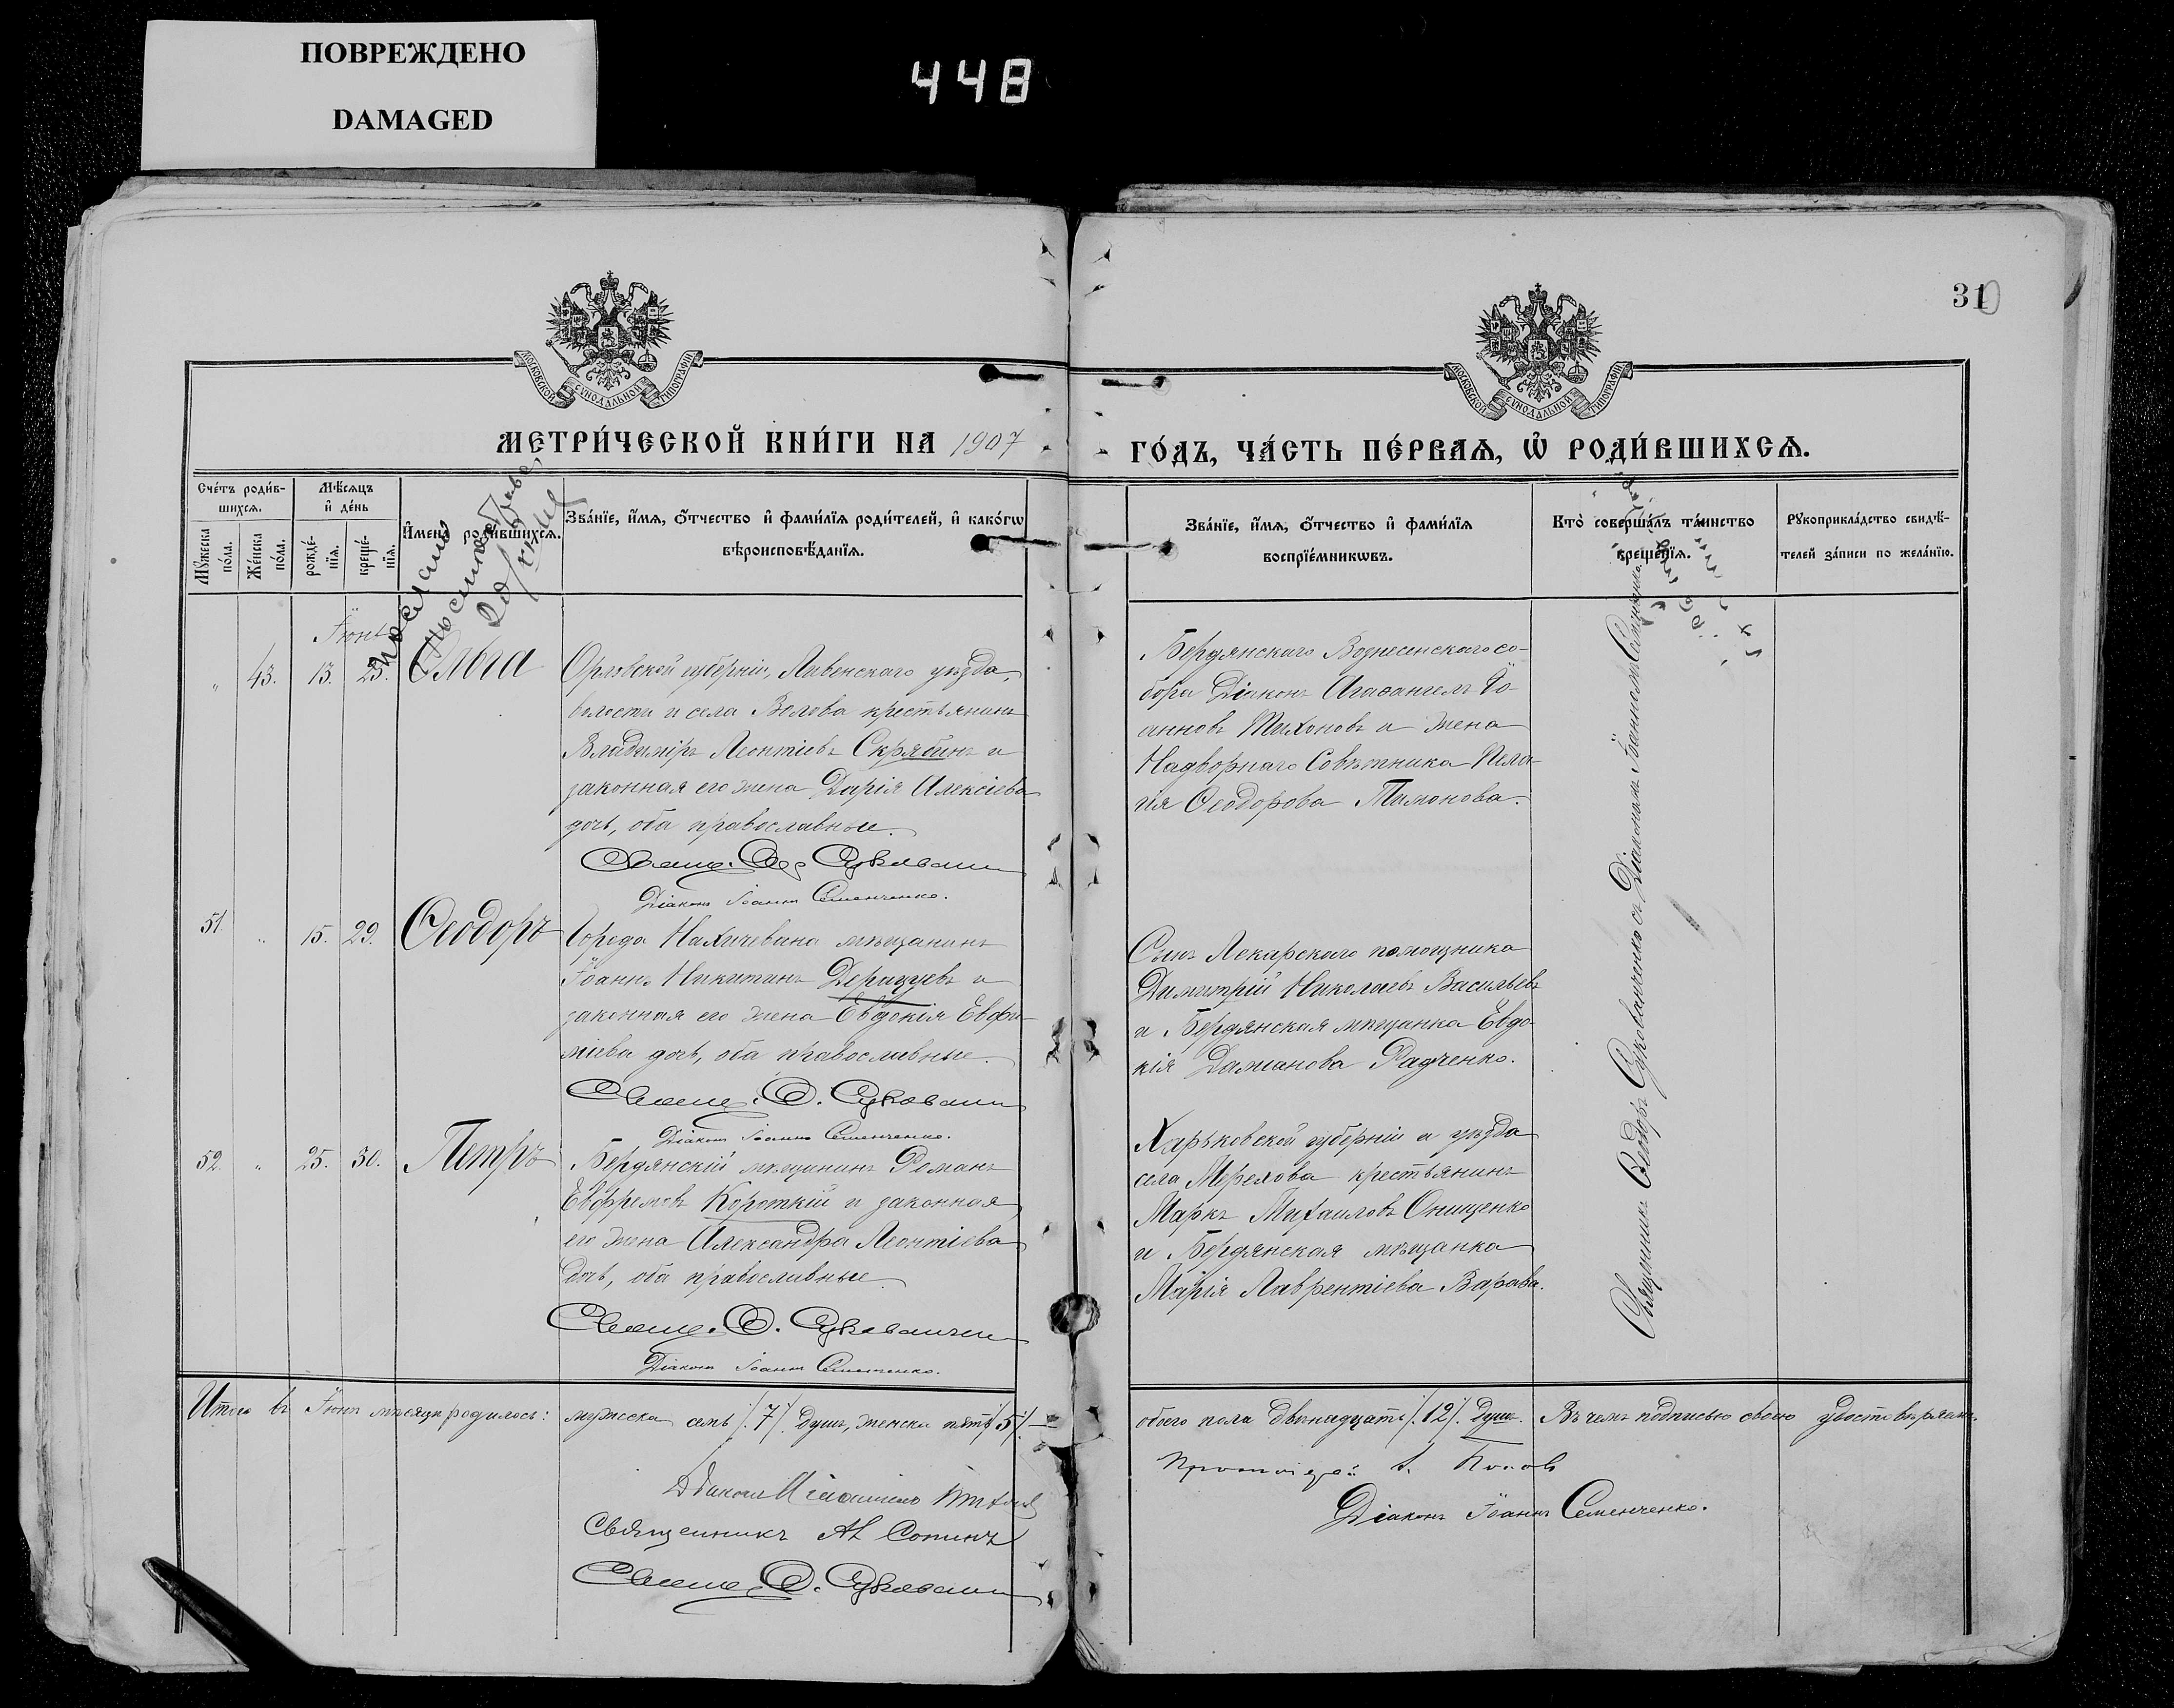 ПОВРЕЖДЕНО
DAMAGED
448
310
МОСКОВСКОЙ СѴНОДАЛЬНОЙ ТИПОГРАФІИ
МОСКОВСКОЙ СѴНОДАЛЬНОЙ ТИПОГРАФІИ
МЕТРИ́ЧЕСКОЙ КНИ́ГИ НА 1907 ГО́ДЪ, ЧА́СТЬ ПЕ́РВАѦ, Ѡ҆ РОДИ́ВШИХСѦ.
Сче́тъ роди́в-
шихсѧ.
Мꙋ́жеска по́ла.
Же́нска по́ла.
Мѣ́сѧцъ
и҆ де́нь
рожде́-
нїѧ.
креще́-
нїѧ.
И҆мена̀ роди́вшихсѧ.
Зва́нїе, и҆́мѧ, ѻ҆́тчество и҆ фами́лїѧ роди́телей, и҆ како́гѡ
вѣроисповѣ́данїѧ.
Зва́нїе, и҆́мѧ, ѻ҆́тчество и҆ фами́лїѧ
воспрїе́мникѡвъ.
Кто̀ соверша́лъ та́инство
креще́нїѧ.
Рꙋкоприкла́дство свидѣ́-
телей за́писи по жела́нїю.
Іюнь
" 43. 13. 23. Ольга
Орловской губерніи, Ливенскаго уѣзда,
волости и села Волова крестьянинъ
Владиміръ Леонтіевъ Скрябинъ и
законная его жена Дарія Алексіева
дочь, оба православные.
Свящ. Ѳео Сукован
Діаконъ Іоаннъ Семенченко.
Бердянскаго Вознесенскаго со-
бора Діаконъ Агаѳангелъ Іо-
анновъ Тихоновъ и жена
Надворнаго Совѣтника Пела-
гія Ѳеодорова Тимонова.
51. " 15. 29. Ѳеодоръ
Города Нахичевана мѣщанинъ
Іоаннъ Никитинъ Дерицуевъ и
законная его жена Евдокія Евфи-
міева дочь, оба православные.
Свящ. Ѳ. Сукован
Діаконъ Іоаннъ Семенченко.
Сынъ Лекарскаго помощника
Димитрій Николаевъ Васильевъ
и Бердянская мѣщанка Евдо-
кія Даміанова Радченко.
52. " 25. 30. Петръ
Бердянскій мѣщанинъ Романъ
Евфремовъ Короткій и законная
его жена Александра Леонтіева
дочь, оба православные.
Свящ. Ѳ. Суковачен
Діаконъ Іоаннъ Семенченко.
Харьковской губерніи и уѣзда
села Мерехова крестьянинъ
Маркъ Михаиловъ Онищенко
и Бердянская мѣщанка
Марія Лаврентіева Варава.
Священникъ Ѳеодоръ Суковаченко съ Діакономъ Іоанномъ Семенченко.
Итого въ Іюнѣ мѣсяцѣ родилось: мужеска семь /.7/. душъ, женска пять /.5/. обоего пола двѣнадцать /.12/. душъ. Въ чемъ подписью своею удостовѣряемъ.
Протоіерей Попов
Діаконъ Іоаннъ Семенченко.
Діаконъ
Священникъ Ал Сопинъ
Свящ. Ѳ. Сукован